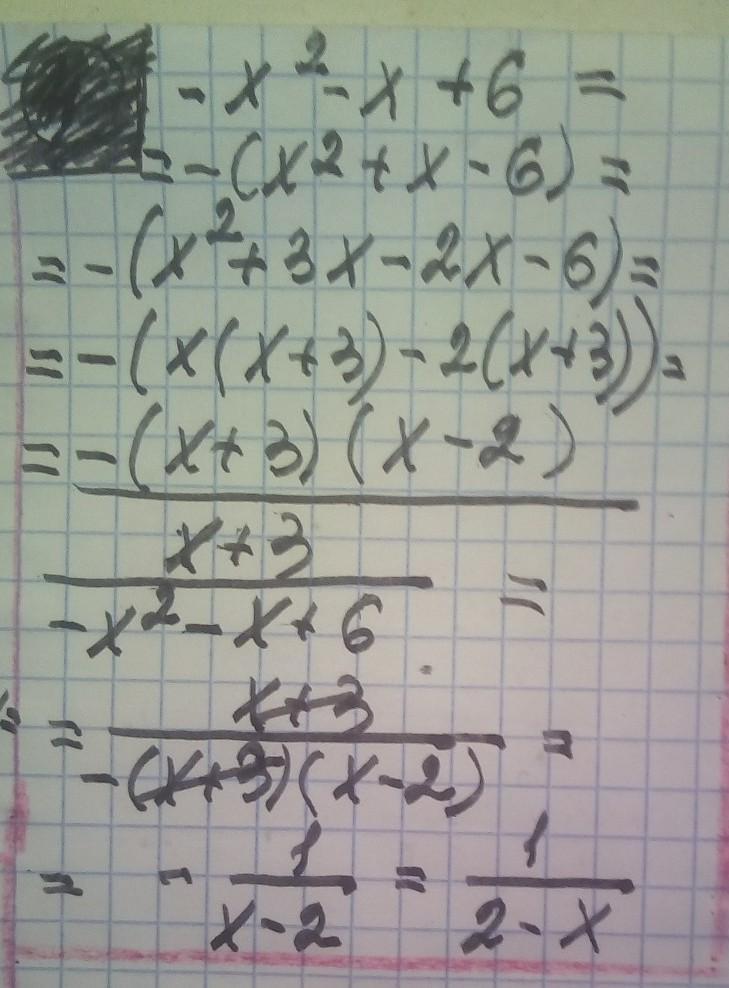 -x² - x + 6 =
= -(x² + x - 6) =
= -(x² + 3x - 2x - 6) =
= -(x(x+3) - 2(x+3)) =
= -(x+3)(x-2)
x+3
-x² - x + 6 =
= x+3
-(x+3)(x-2) =
= - 1/(x-2) = 1/(2-x)